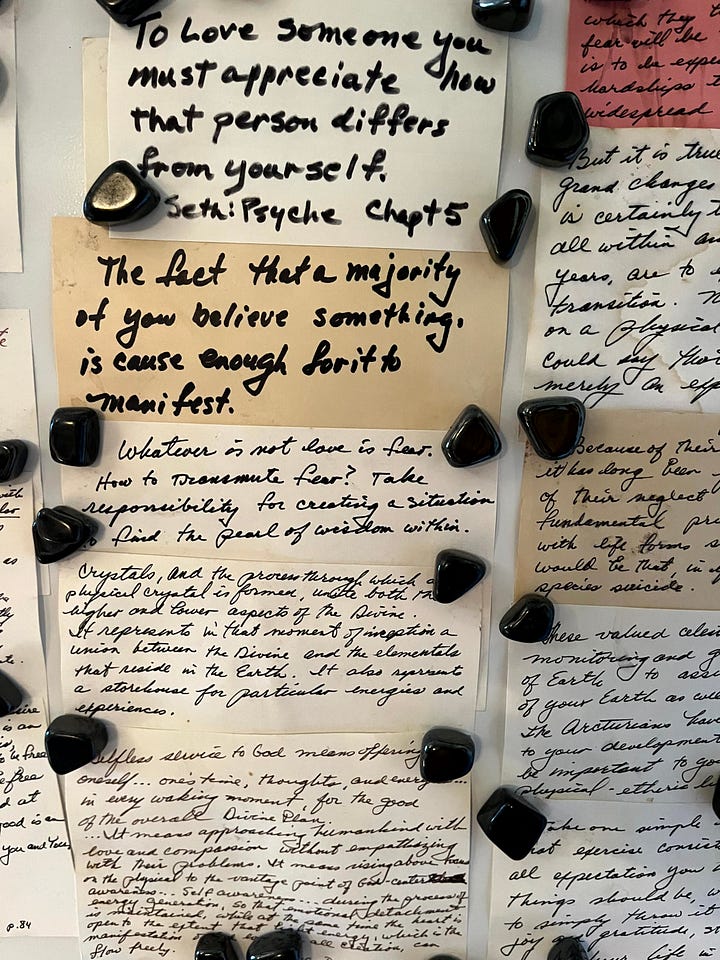 To Love someone you
must appreciate how
that person differs
from yourself.
Seth: Psyche Chapt 5
The fact that a majority
of you believe something,
is cause enough for it to
manifest.
Whatever is not love is fear.
How to Transmute fear? Take
responsibility for creating a situation
find the pearl of wisdom within.
Crystals, and the process through which a
physical crystal is formed, unite both the
higher and lower aspects of the Divine.
It represents in that moment of inception a
union between the Divine and the elementals
that reside in the Earth. It also represents
a storehouse for particular energies and
experiences.
Selfless service to God means offering
oneself... one's time, thoughts, and energy...
in every waking moment, for the good
of the overall Divine Plan.
...It means approaching humankind with
love and compassion without empathizing
with their problems. It means rising above focus
on the physical to the vantage point of God-center
awareness... Self awareness... during the process of
energy generation, so that emotional detachment
is maintained, while at the same time the heart is
open to the extent that light energy, which is the
manifestation all creation, can
flow freely.
which they
fear will be
is to be
hardships
widespread
But it is true
grand changes
is certainly
all within
years, are to
transition.
on a physical
could say
merely an
Because of their
it has long been
of their neglect
fundamental
with life forms
would be that in
species suicide.
These valued
monitoring and
of Earth to
of your Earth as
the Arcturians have
to your development
be important to
physical-etheric
Take one simple
that exercise
all expectation you
things should be,
to simply throw it
joy and gratitude,
your life in
is an
free
at
good is an
you and
p.84